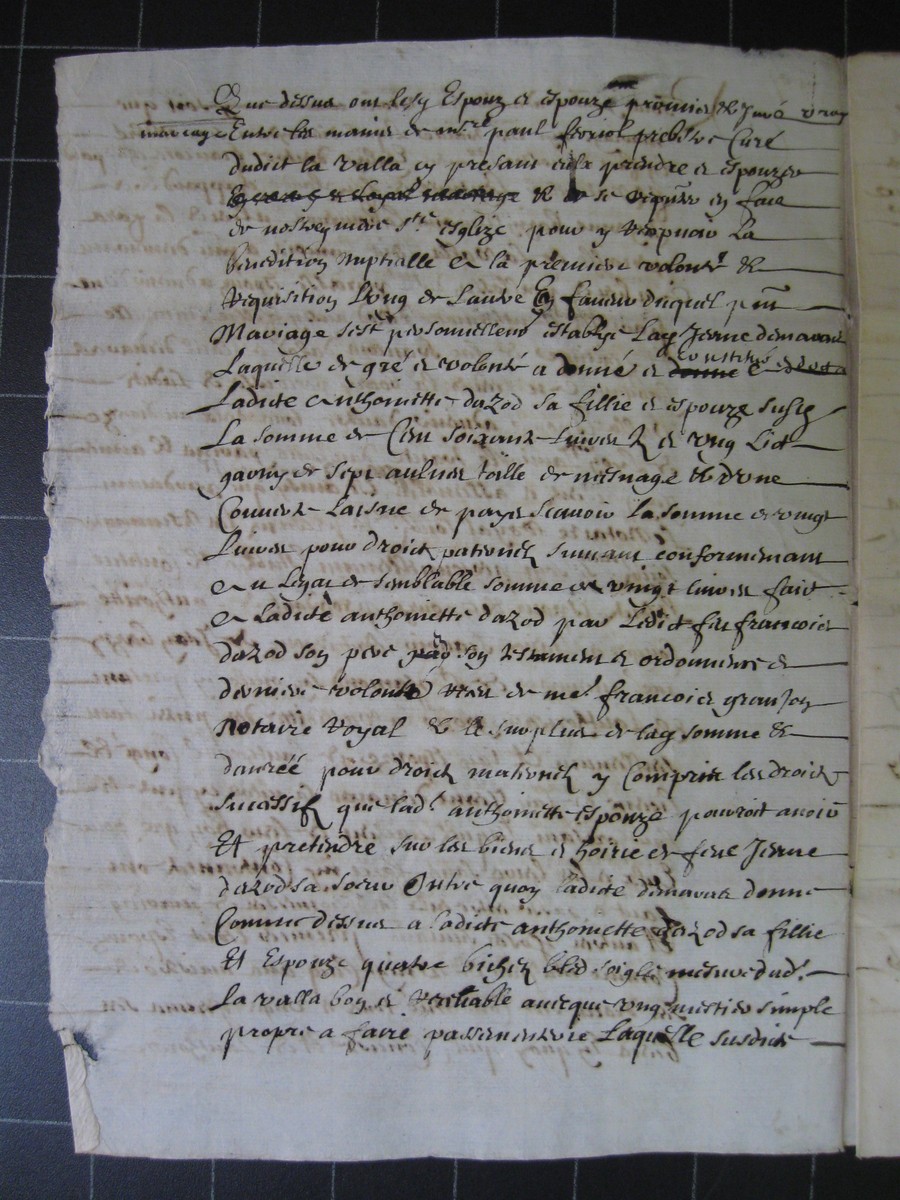 Que dessus ont lesd Espoux et espouze promis et juré vray
mariage Entre les mains de mre paul ferriol prebstre Curé
dudict la valla en presant eulx prendre et espouzer
et se requis en face
de nostre mere Ste esglize pour y recepuoir la
benedition nuptialle a la premiere volonté et
requisition lung de lautre En faueur duquel pnt
Mariage sest personnellemt establye Lad Jeane demavare
Laquelle de gré et volonté a donné et constitué a
Ladicte anthoinette dazod sa fillie et espouze susd
La somme de Cent soixante Liures et ung Lict
garny de sept aulnes toille de mesnage et dune
Couuerte Laisne de pays scauoir La somme de vingt
Liures pour droict paternel suiuant conformemant
au Legat de semblable somme de vingt liures faict
a Ladicte anthoinette dazod par Ledict feu francois
dazod son pere en son testament et ordonnence de
derniere volonté receu de me francois granjon
Notaire Royal et le surplus de lad somme et
danrée pour droict maternel y Comprins les droictz
sucessifz que lad anthoinette espouze pourroit auoir
Et pretendre sur les biens et hoirie de feue Jeane
dazod sa soeur Oultre quoy ladicte demavare donne
Comme dessus a ladicte anthoinette dazod sa fillie
Et Espouze quatre bichetz bled soigle mesure dud
La valla bon et receuable auecque ung mestier simple
propre a faire passementerie Laquelle susdicte